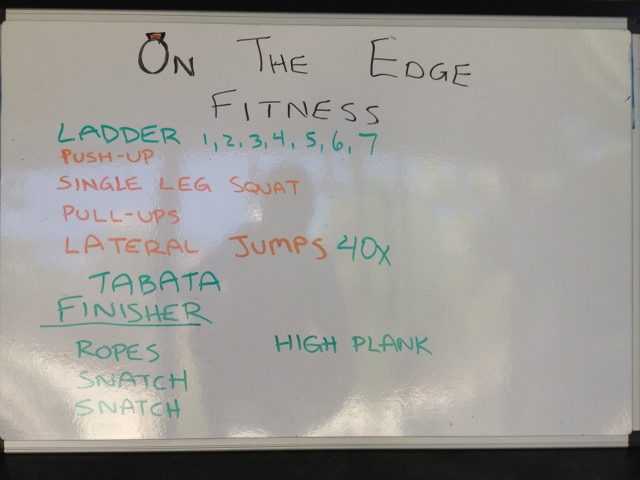 ON THE EDGE
FITNESS
LADDER 1, 2, 3, 4, 5, 6, 7
PUSH-UP
SINGLE LEG SQUAT
PULL-UPS
LATERAL JUMPS 40X
TABATA
FINISHER
ROPES HIGH PLANK
SNATCH
SNATCH